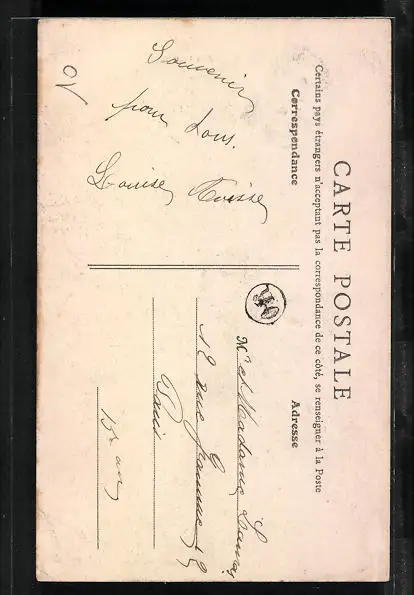 CARTE POSTALE
Certains pays étrangers n'acceptant pas la correspondance de ce côté, se renseigner à la Poste
Correspondance
Adresse
Souvenir
pour tous.
Louise
Mr et Madame
rue
Paris
15e arr